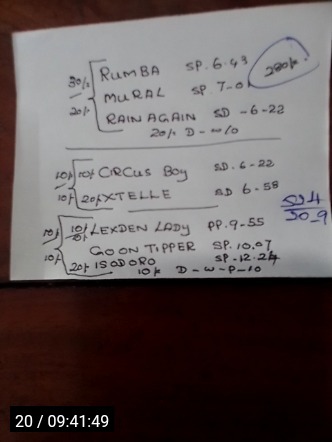 30/- RUMBA SP. 6.43 280/-
MURAL SP. 7-0
20/- RAIN AGAIN SD - 6-22
20/- D - W/O
10/- 10/- CIRCUS BOY SD. 6-22
10/- 20/- XTELLE SD 6.58
504
30_9
10/- 10/- LEXDEN LADY PP. 9-55
10/- GO ON TIPPER SP. 10.07
20/- ISODORO SP - 12.24
10/- D - W - P - 10
20 / 09:41:49